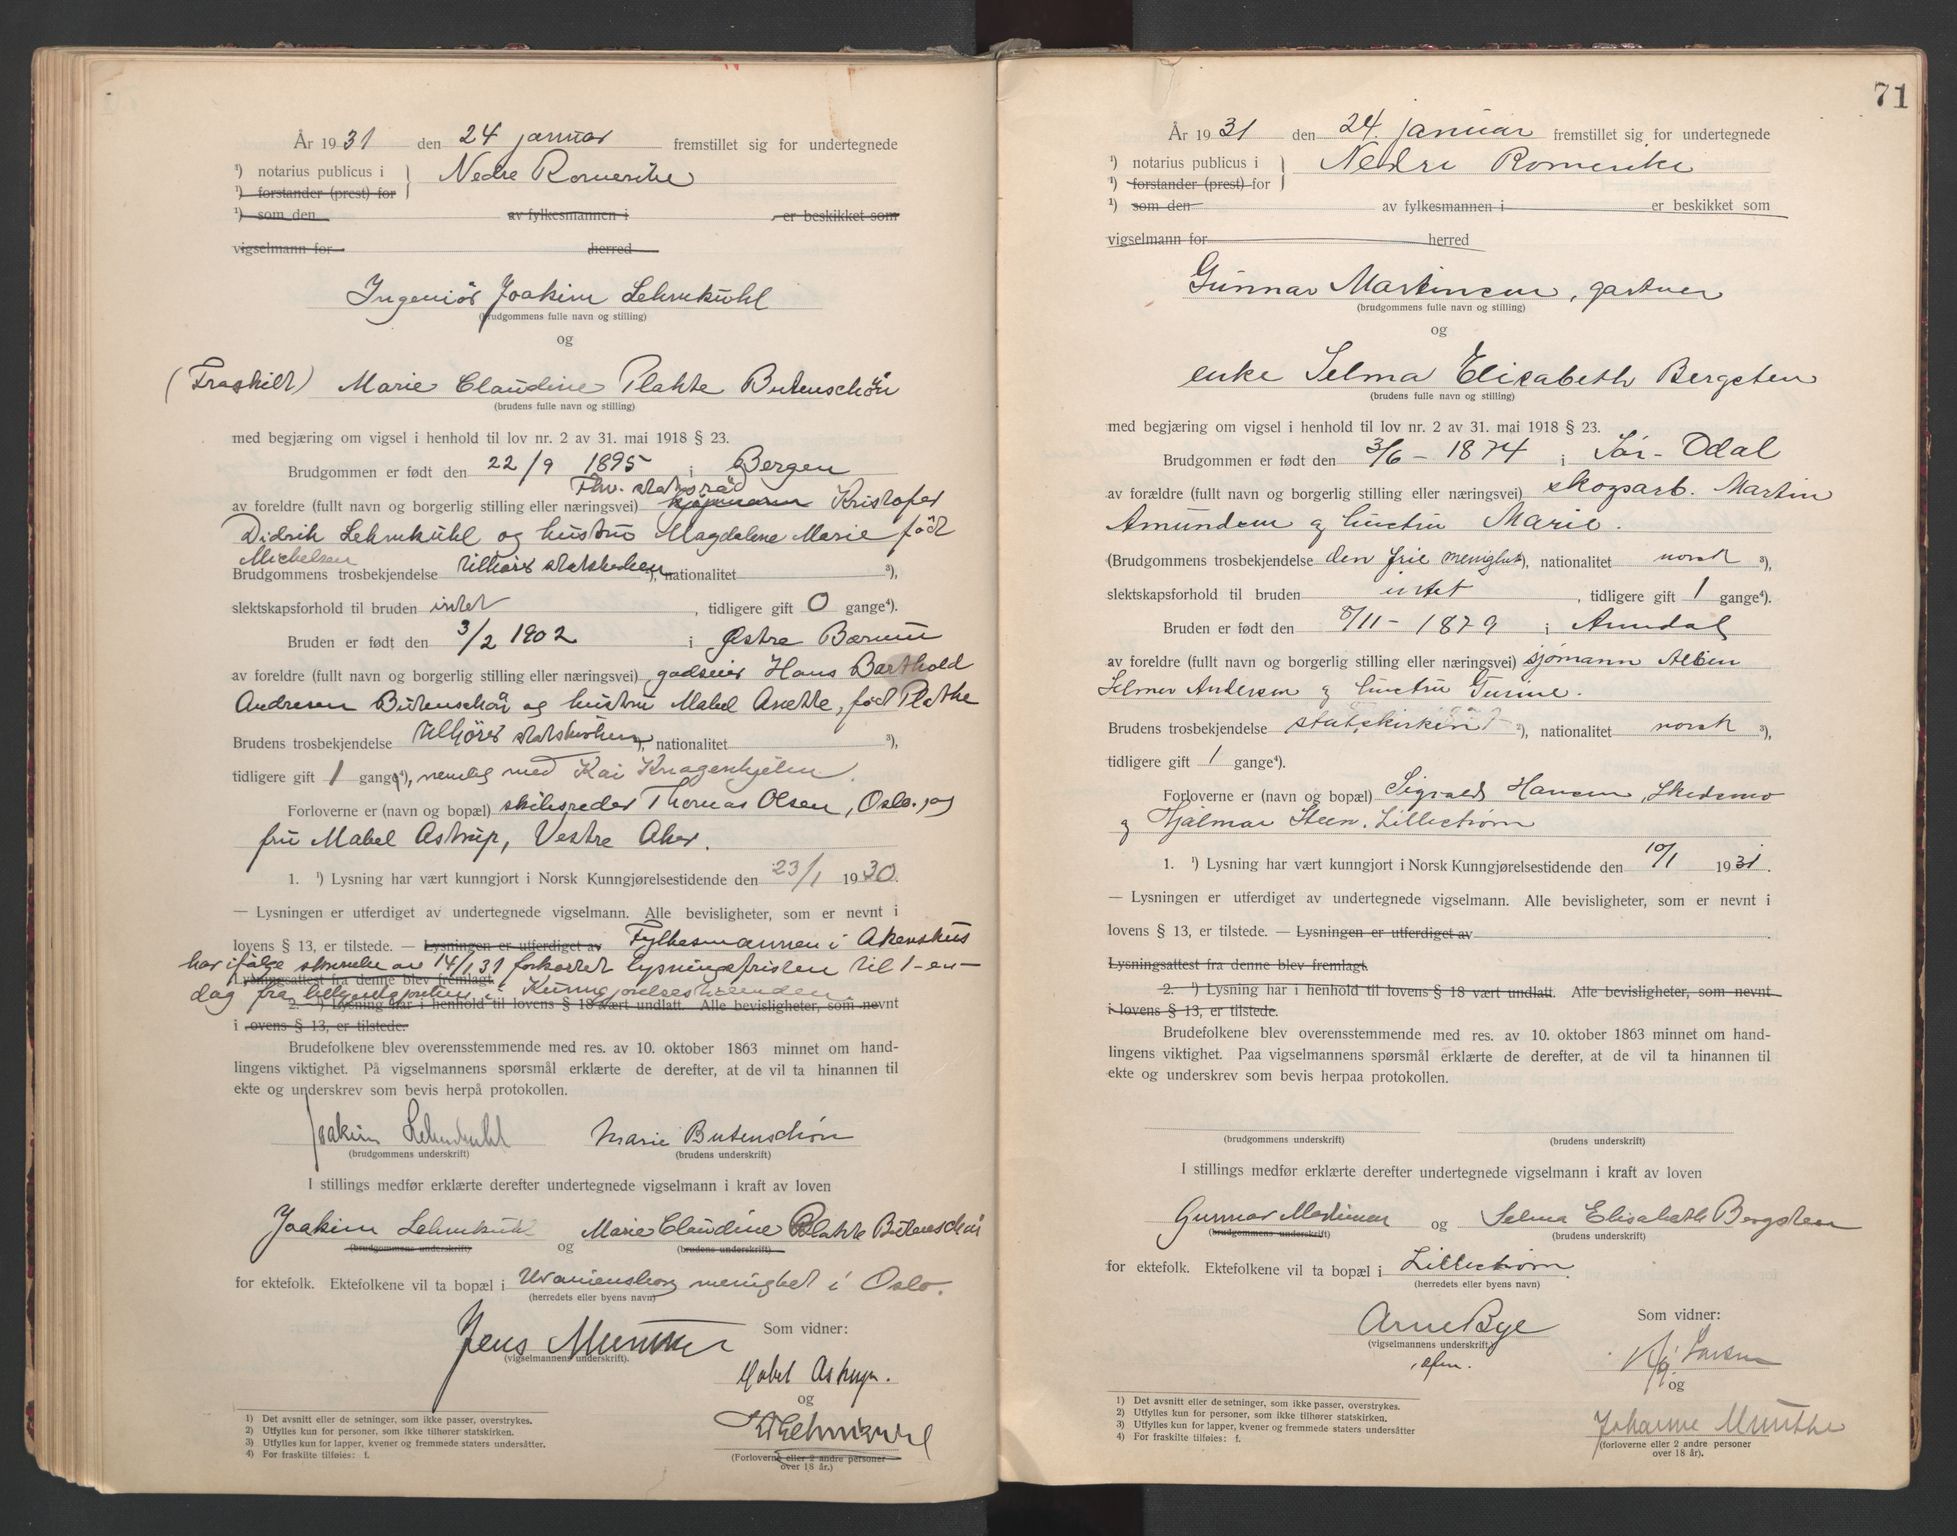 År 1931 den 24 januar fremstillet sig for undertegnede
¹) notarius publicus i } Nedre Romerike
¹) forstander (prest) for
¹) som den av fylkesmannen i er beskikket som
vigselmann for herred
Ingeniør Joakim Lehmkuhl
(brudgommens fulle navn og stilling)
og
(Fraskilt) Marie Claudine Plahte Butenschøn
(brudens fulle navn og stilling)
med begjæring om vigsel i henhold til lov nr. 2 av 31. mai 1918 § 23.
Brudgommen er født den 22/9 1895 i Bergen
Fhv. statsråd
av foreldre (fullt navn og borgerlig stilling eller næringsvei) kjøpmann Kristofer
Didrik Lehmkuhl og hustru Magdalene Marie født
Michelsen
Brudgommens trosbekjendelse tilhører statskirken ²), nationalitet ³),
slektskapsforhold til bruden intet , tidligere gift 0 gange⁴).
Bruden er født den 3/2 1902 i Østre Bærum
av foreldre (fullt navn og borgerlig stilling eller næringsvei) godseier Hans Barthold
Andresen Butenschøn og hustru Mabel Anette, født Plahte
Brudens trosbekjendelse tilhører statskirken ²), nationalitet ³),
tidligere gift 1 gang⁴), nemlig med Kai Knagenhjelm.
Forloverne er (navn og bopæl) skibsreder Thomas Olsen, Oslo, og
fru Mabel Astrup, Vestre Aker.
1. ¹) Lysning har vært kunngjort i Norsk Kunngjørelsestidende den 23/1 1930.
— Lysningen er utferdiget av undertegnede vigselmann. Alle bevisligheter, som er nevnt i
lovens § 13, er tilstede. — Lysningen er utferdiget av Fylkesmannen i Akershus
har ifølge skrivelse av 14/1 31 forkortet lysningsfristen til 1 - en -
Lysningsattest fra denne blev fremlagt
dag fra bekjentgjørelsen i Kunngjørelsestidenden.
2. ¹) Lysning har i henhold til lovens § 18 vært undlatt. Alle bevisligheter, som nevnt
i lovens § 13, er tilstede.
Brudefolkene blev overensstemmende med res. av 10. oktober 1863 minnet om hand-
lingens viktighet. På vigselmannens spørsmål erklærte de derefter, at de vil ta hinannen til
ekte og underskrev som bevis herpå protokollen.
Joakim Lehmkuhl Marie Butenschøn
(brudgommens underskrift) (brudens underskrift)
I stillings medfør erklærte derefter undertegnede vigselmann i kraft av loven
Joakim Lehmkuhl og Marie Claudine Plahte Butenschøn
(brudgommens underskrift) (brudens underskrift)
for ektefolk. Ektefolkene vil ta bopæl i Uranienborg menighet i Oslo.
(herredets eller byens navn)
Jens
(vigselmannens underskrift).
Som vidner:
Mabel Astrup.
og
KLehmkuhl
(Forloverne eller 2 andre personer
over 18 år.)
1) Det avsnitt eller de setninger, som ikke passer, overstrykes.
2) Utfylles kun for personer, som ikke tilhører statskirken.
3) Utfylles kun for lapper, kvener og fremmede staters undersåtter.
4) For fraskilte tilføies: f.
71
År 1931 den 24. januar fremstillet sig for undertegnede
¹) notarius publicus i } Nedre Romerike
¹) forstander (prest) for
¹) som den av fylkesmannen i er beskikket som
vigselmann for herred
Gunnar Martinsen, gartner
(brudgommens fulle navn og stilling)
og
enke Selma Elisabeth Bergsten
(brudens fulle navn og stilling)
med begjæring om vigsel i henhold til lov nr. 2 av 31. mai 1918 § 23.
Brudgommen er født den 3/6 - 1874 i Sør-Odal
av forældre (fullt navn og borgerlig stilling eller næringsvei) skogsarb. Martin
Amundsen og hustru Marie.
(Brudgommens trosbekjendelse den frie menighet ²), nationalitet norsk ³),
slektskapsforhold til bruden intet , tidligere gift 1 gange⁴).
Bruden er født den /11 - 1879 i Arendal
av foreldre (fullt navn og borgerlig stilling eller næringsvei) sjømann Albin
Selmer Andersen og hustru Gunine.
Brudens trosbekjendelse statskirken ²), nationalitet norsk ³),
tidligere gift 1 gange⁴).
Forloverne er (navn og bopæl) Sigvald Hansen, Skedsmo
og Hjalmar Steen, Lillestrøm
1. ¹) Lysning har vært kunngjort i Norsk Kunngjørelsestidende den 10/1 1931.
— Lysningen er utferdiget av undertegnede vigselmann. Alle bevisligheter, som er nevnt i
lovens § 13, er tilstede. — Lysningen er utferdiget av
Lysningsattest fra denne blev fremlagt.
2. ¹) Lysning har i henhold til lovens § 18 vært undlatt. Alle bevisligheter, som nevnt
i lovens § 13, er tilstede.
Brudefolkene blev overensstemmende med res. av 10. oktober 1863 minnet om hand-
lingens viktighet. Paa vigselmannens spørsmål erklærte de derefter, at de vil ta hinannen til
ekte og underskrev som bevis herpaa protokollen.
(brudgommens underskrift) (brudens underskrift)
I stillings medfør erklærte derefter undertegnede vigselmann i kraft av loven
Gunnar Martinsen og Selma Elisabeth Bergsteen
(brudgommens underskrift) (brudens underskrift)
for ektefolk. Ektefolkene vil ta bopæl i Lillestrøm.
(herredets eller byens navn)
Arne Bye
(vigselmannens underskrift)
Som vidner:
Larsen
og
Johanne Munthe
(forloverne eller 2 andre personer
over 18 år).
1) Det avsnitt eller de setninger, som ikke passer, overstrykes.
2) Utfylles kun for personer, som ikke tilhører statskirken.
3) Utfylles kun for lapper, kvener og fremmede staters undersåtter
4) For fraskilte tilføies: f.